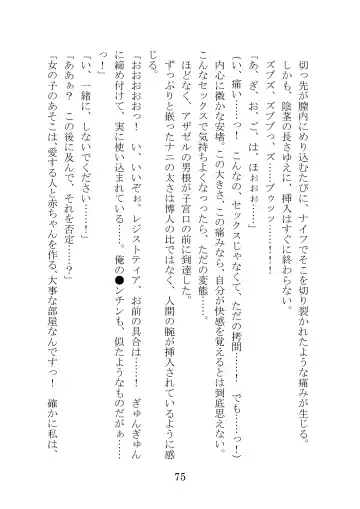 切っ先が膣内にめり込むたびに、ナイフでそこを切り裂かれたような痛みが生じる。
　しかも、陰茎の長さゆえに、挿入はすぐに終わらない。
　ズブズ、ズブブっ、ズ……ブゥッッ……！！！
「あ、ぎ、お、ご、は、ほぉぉ……」
（い、痛い……っ！　こんなの、セックスじゃなくて、ただの拷問……！　でも……っ！）
　内心に微かな安堵。この大きさ、この痛みなら、自分が快感を覚えるとは到底思えない。
こんなセックスで気持ちよくなったら、ただの変態……。
　ほどなく、アザゼルの男根が子宮口の前に到達した。
　ずっぷりと嵌ったナニの太さは博人の比ではなく、人間の腕が挿入されているように感
じる。
「おおおおおっ！　い、いいぞぉ、レジスティア、お前の具合は……！　ぎゅんぎゅん
に締め付けて、実に使い込まれている……。俺の●ンチンも、似たようなものだがぁ……
っ！」
「い、一緒に、しないでください……！」
「ああぁ？　この後に及んで、それを否定……？」
「女の子のあそこは、愛する人と赤ちゃんを作る、大事な部屋なんですっ！　確かに私は、
75